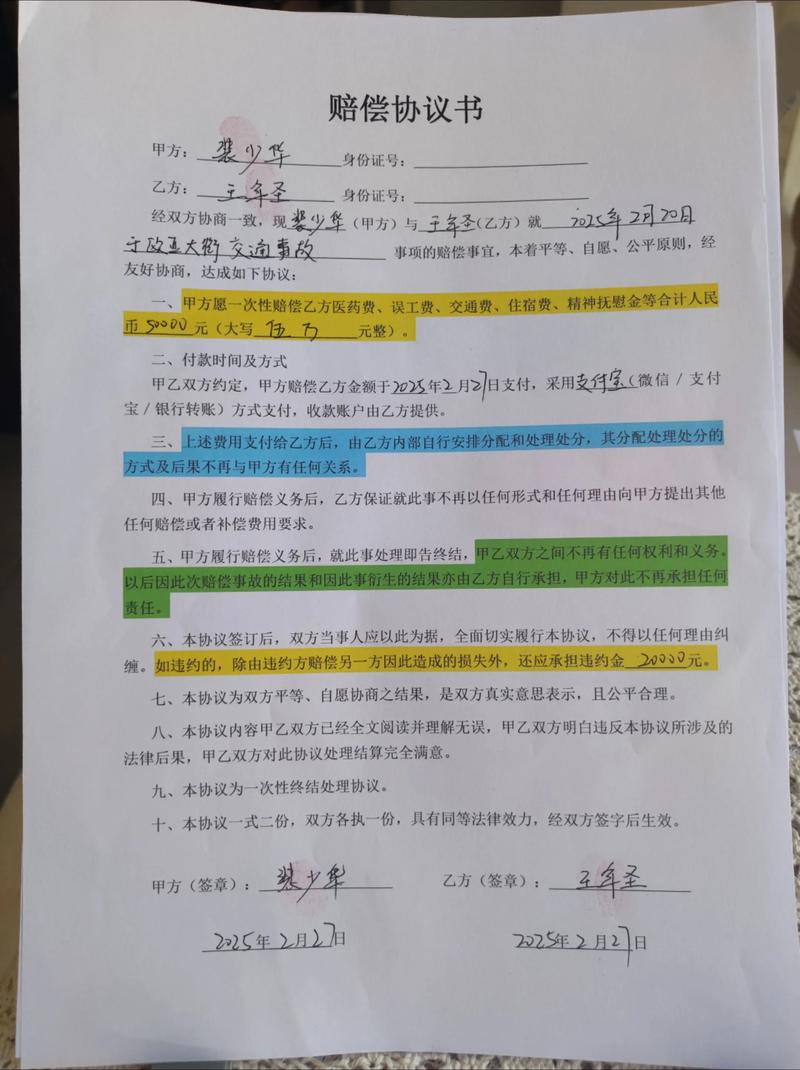 赔偿协议书
甲方：裴少华 身份证号：
乙方：王年圣 身份证号：
经双方协商一致，现裴少华（甲方）与王年圣(乙方）就 2025年2月20日
于政直大街交通事故 事项的赔偿事宜，本着平等、自愿、公平原则，经
友好协商，达成如下协议：
一、甲方愿一次性赔偿乙方医药费、误工费、交通费、住宿费、精神抚慰金等合计人民
币50000元（大写 伍万 元整）。
二、付款时间及方式
甲乙双方约定，甲方赔偿乙方金额于2025年2月27日支付，采用支付宝（微信／支付
宝／银行转账）方式支付，收款账户由乙方提供。
三、上述费用支付给乙方后，由乙方内部自行安排分配和处理处分，其分配处理处分的
方式及后果不再与甲方有任何关系。
四、甲方履行赔偿义务后，乙方保证就此事不再以任何形式和任何理由向甲方提出其他
任何赔偿或者补偿费用要求。
五、甲方履行赔偿义务后，就此事处理即告终结，甲乙双方之间不再有任何权利和义务。
以后因此次赔偿事故的结果和因此事衍生的结果亦由乙方自行承担，甲方对此不再承担任何
责任。
六、本协议签订后，双方当事人应以此为据，全面切实履行本协议，不得以任何理由纠
缠。如违约的，除由违约方赔偿另一方因此造成的损失外，还应承担违约金 20000元。
七、本协议为双方平等、自愿协商之结果，是双方真实意思表示，且公平合理。
八、本协议内容甲乙双方已经全文阅读并理解无误，甲乙双方明白违反本协议所涉及的
法律后果，甲乙双方对此协议处理结算完全满意。
九、本协议为一次性终结处理协议。
十、本协议一式二份，双方各执一份，具有同等法律效力，经双方签字后生效。
甲方（签章）：裴少华 乙方（签章）：王年圣
2025年2月27日 2025年2月27日